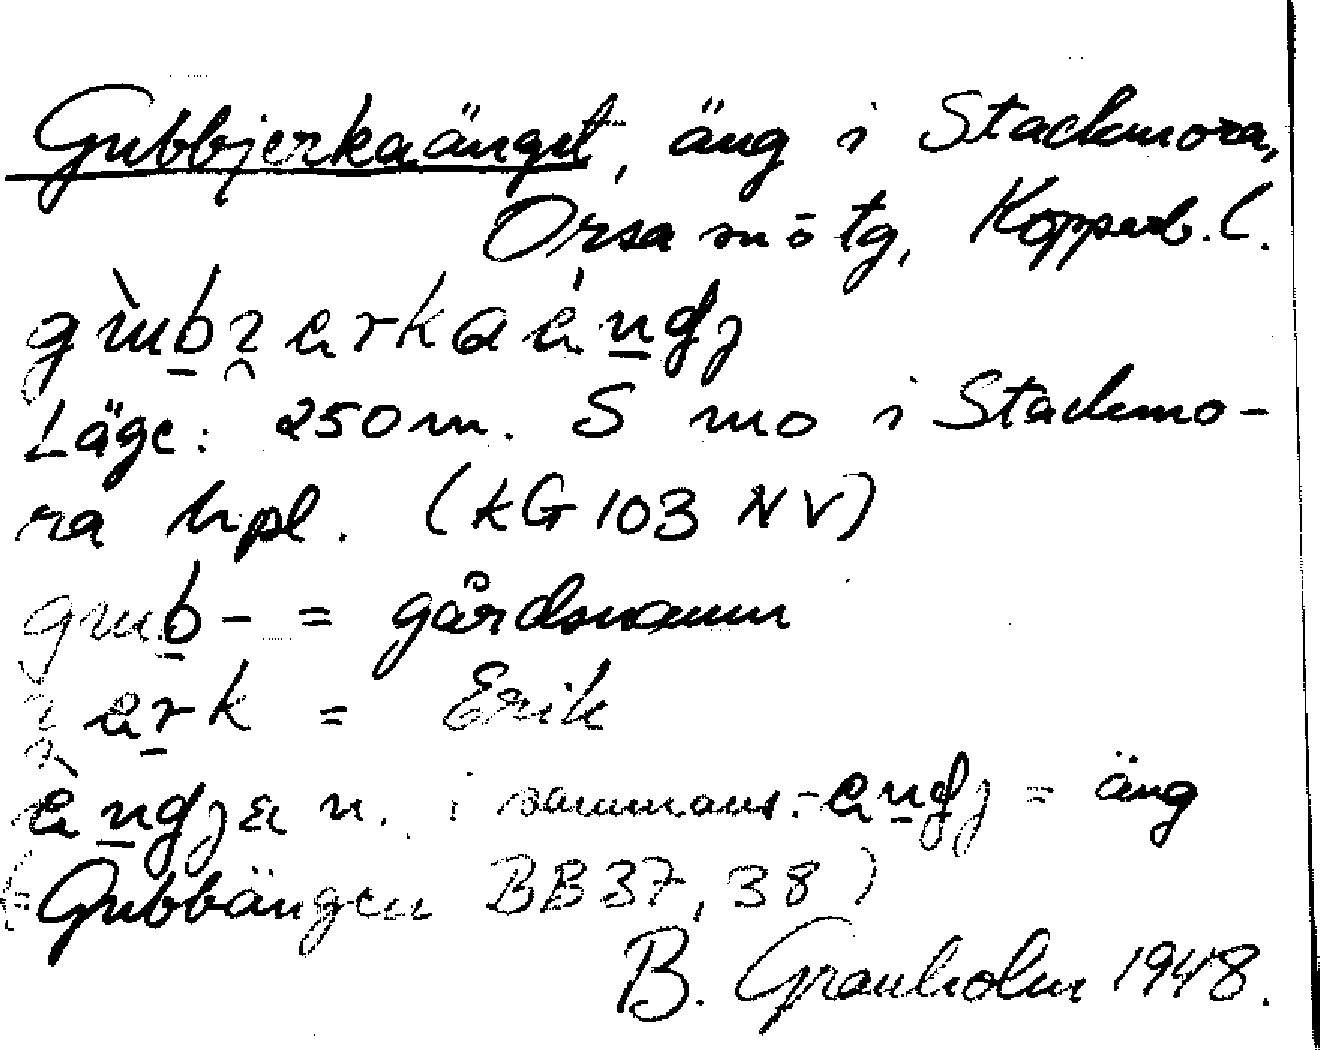 Gubbjerkaänget, äng i Stackmora,
Orsa sn ö tg, Kopparb. l.
Läge: 250 m. S mo i Stackmo-
ra hpl. (KG 103 NV)
= gårdsnamn
= Erik
n. i sammans. = äng
(= Gubbängen BB37, 38)
B. Granholm 1948.